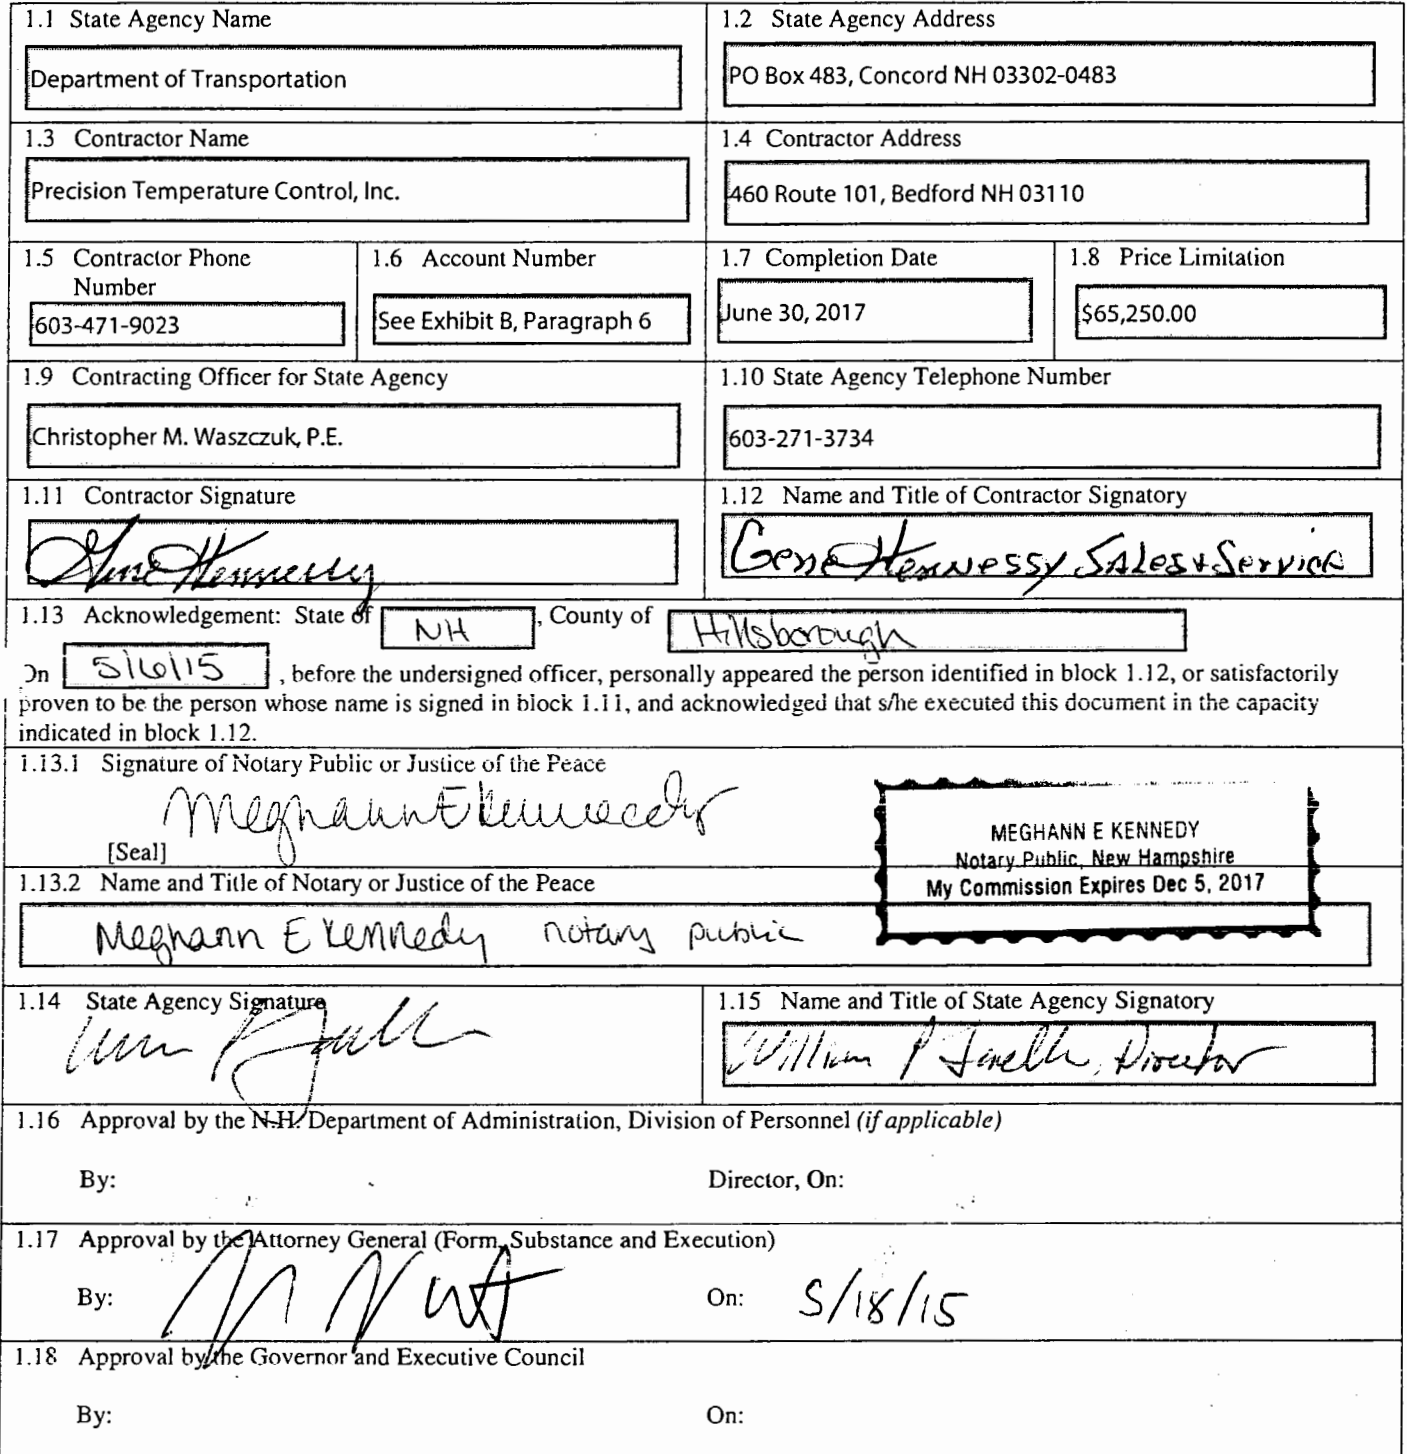 1.1 State Agency Name
Department of Transportation
1.2 State Agency Address
PO Box 483, Concord NH 03302-0483
1.3 Contractor Name
Precision Temperature Control, Inc.
1.4 Contractor Address
460 Route 101, Bedford NH 03110
1.5 Contractor Phone
Number
603-471-9023
1.6 Account Number
See Exhibit B, Paragraph 6
1.7 Completion Date
June 30, 2017
1.8 Price Limitation
$65,250.00
1.9 Contracting Officer for State Agency
Christopher M. Waszczuk, P.E.
1.10 State Agency Telephone Number
603-271-3734
1.11 Contractor Signature
Gene Hennessy
1.12 Name and Title of Contractor Signatory
Gene Hennessy Sales + Service
1.13 Acknowledgement: State of NH, County of Hillsborough
On 5/6/15, before the undersigned officer, personally appeared the person identified in block 1.12, or satisfactorily
proven to be the person whose name is signed in block 1.11, and acknowledged that s/he executed this document in the capacity
indicated in block 1.12.
1.13.1 Signature of Notary Public or Justice of the Peace
Meghann E Kennedy
[Seal]
MEGHANN E KENNEDY
Notary Public, New Hampshire
My Commission Expires Dec 5, 2017
1.13.2 Name and Title of Notary or Justice of the Peace
Meghann E Kennedy notary public
1.14 State Agency Signature
1.15 Name and Title of State Agency Signatory
William P Director
1.16 Approval by the N.H. Department of Administration, Division of Personnel (if applicable)
By:
Director, On:
1.17 Approval by the Attorney General (Form, Substance and Execution)
By:
On: 5/18/15
1.18 Approval by the Governor and Executive Council
By:
On: